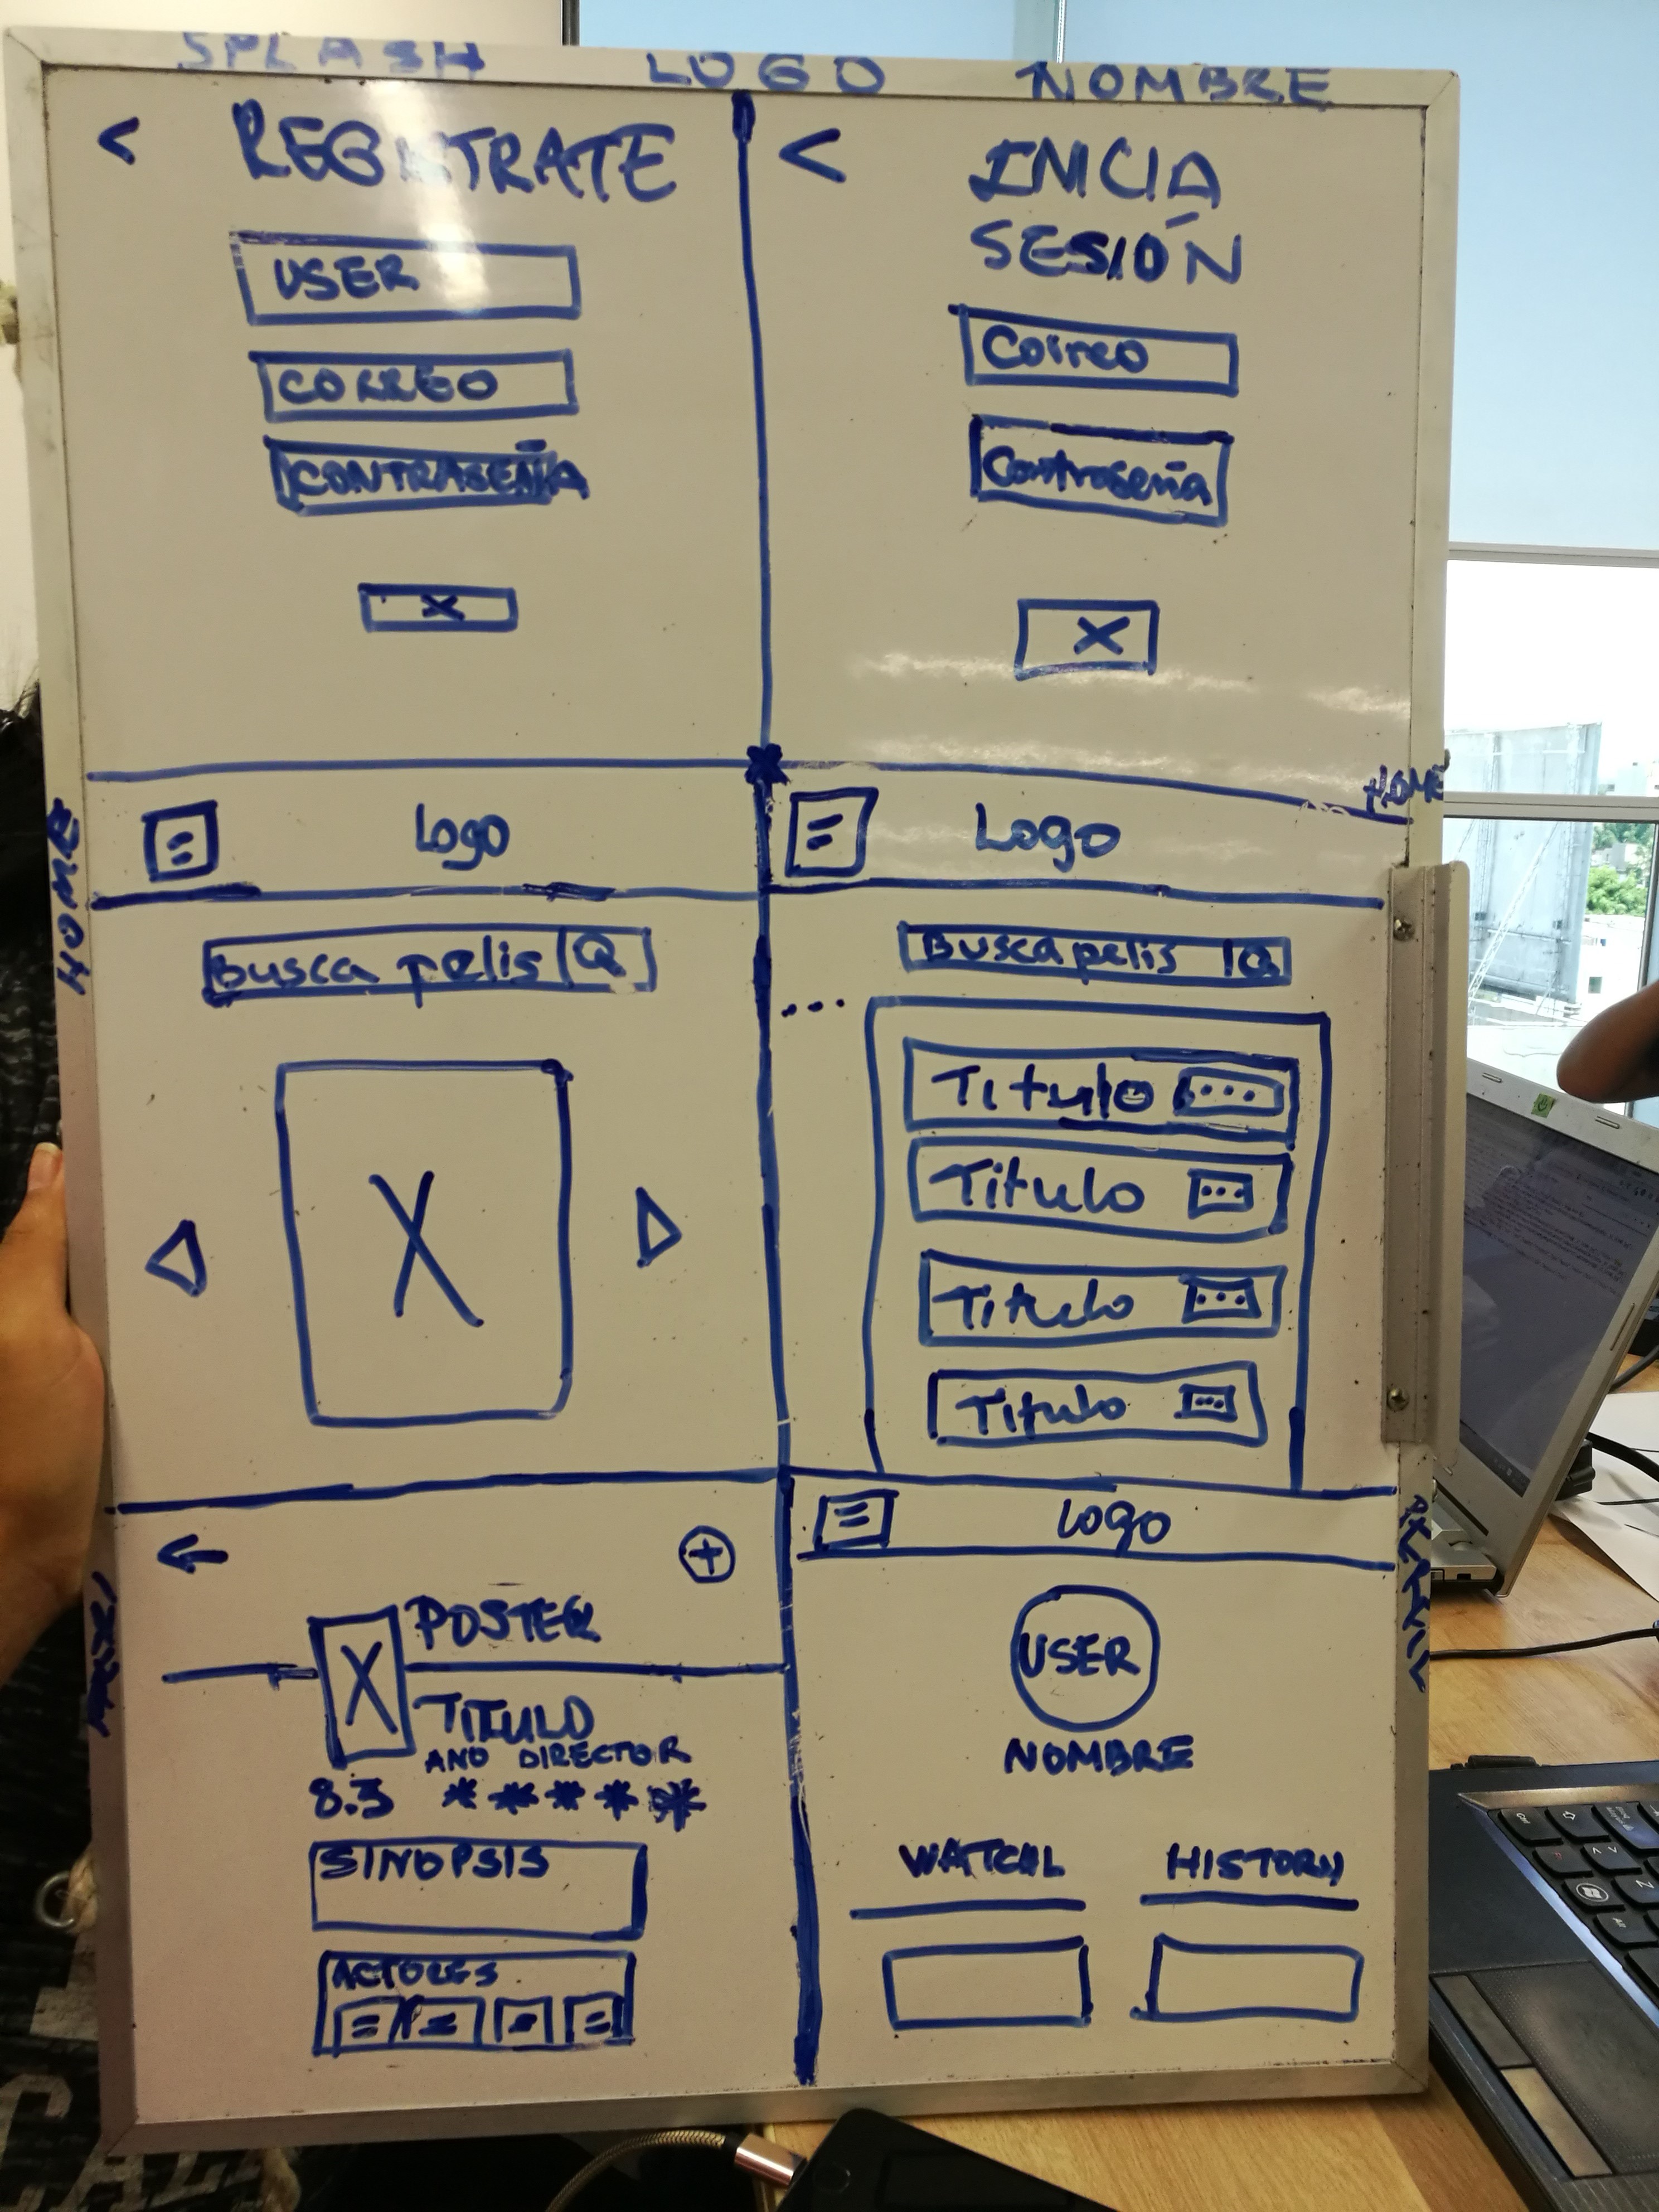 SPLASH LOGO NOMBRE
< REGISTRATE
USER
CORREO
CONTRASEÑA
X
< INICIA
SESIÓN
Correo
Contraseña
X
HOME
Logo
Busca pelis
X
HOME
Logo
Busca pelis
...
Titulo ...
Titulo ...
Titulo ...
Titulo ...
← +
POSTER
X
TITULO
AND DIRECTOR
8.3 * * * * *
SINOPSIS
ACTORES
Logo
USER
NOMBRE
WATCHL HISTORY